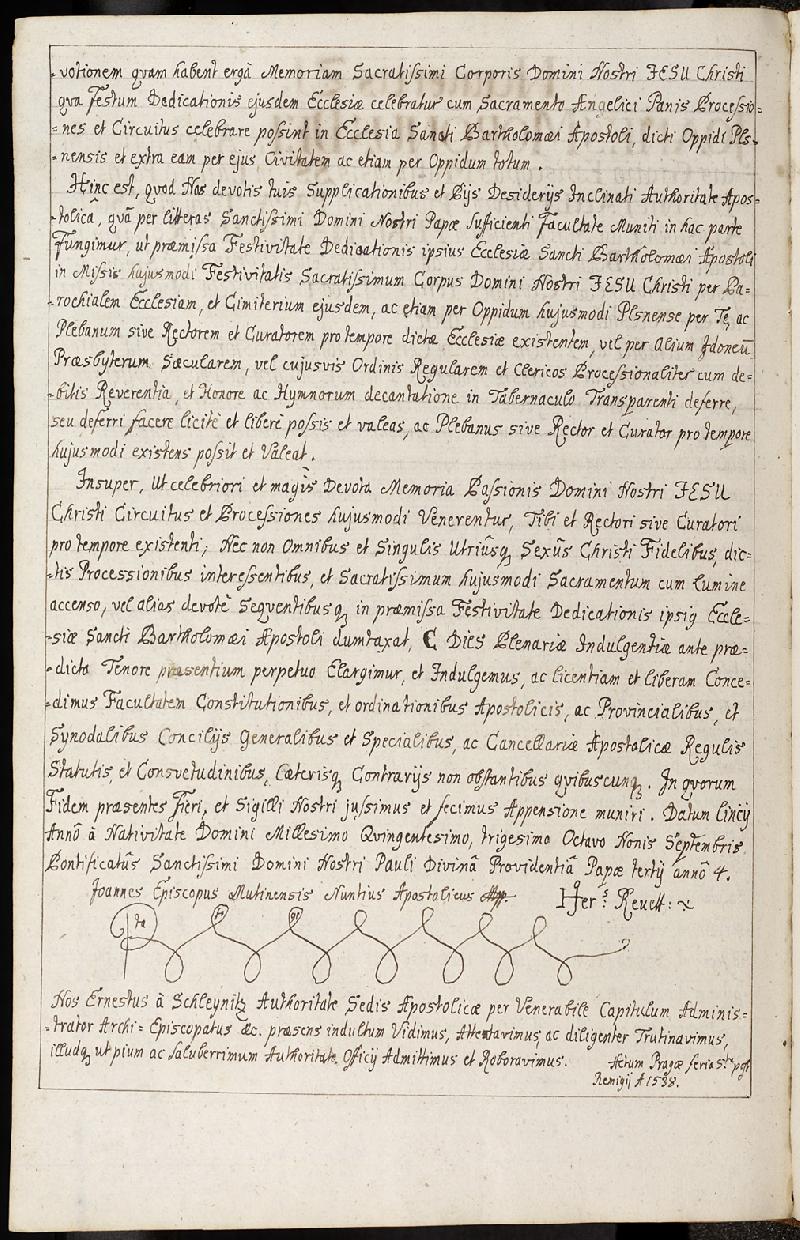 -votionem qvam habent ergà Memoriam Sacratissimi Corporis Domini Nostri JESU Christi
qva Festum Dedicationis ejusdem Ecclesiæ celebratur cum Sacramento Angelici Panis Processio=
=nes et Circuitus celebrare possint in Ecclesia Sancti Bartholomæi Apostoli, dicti Oppidi Pls-
-nensis et extra eam per ejus Civitatem ac etiam per Oppidum totum.
Hinc est, qvod Nos devotis tuis Supplicationibus et Pijs Desiderijs Inclinati Authoritate Apos-
-tolicâ, qvâ per litteras Sanctissimi Domini Nostri Papæ sufficienti Facultate Muniti in hac parte
Fungimur, ut præmissa Festivitate Dedicationis ipsius Ecclesiæ Sancti Bartholomæi Apostoli
in Missis hujusmodi Festivitatis Sacratissimum Corpus Domini Nostri JESU Christi per Pa=
-rochialem Ecclesiam, et Cimiterium ejusdem, ac etiam per Oppidum hujusmodi Plsnense per Te, ac
Plebanum sive Rectorem et Curatorem pro tempore dictæ Ecclesiæ existentem, vel per Alium Idoneū
Præsbyterum Sæcularem, vel cujusvis Ordinis Regularem et Clericos Processionaliter cum de=
-bitis Reverentia, et Honore ac Hymnorum decantatione in Tabernaculo Transparenti deferre,
seu deferri facere licitè et liberè possis et valeas, ac Plebanus sive Rector et Curator pro tempore
hujusmodi existens possit et Valeat.
Insuper, Ut celebriori et magis Devota Memoria Passionis Domini Nostri JESU
Christi Circuitus et Processiones hujusmodi Venerentur, Tibi et Rectori sive Curatori
pro tempore existenti, Nec non Omnibus et Singulis Utriûsq₃ Sexûs Christi Fidelibus, dic=
-tis Processionibus interessentibus, et Sacratissimum hujusmodi Sacramentum cum lumine
accenso, vel alias devotè Seqventibusq₃ in præmissa Festivitate Dedicationis ipsiq Eccle=
-siæ Sancti Bartholomæi Apostoli dumtaxat, C Dies Plenariæ Indulgentiæ ante præ=
-dicta Tenore præsentium perpetuo Elargimur, et Indulgemus, ac licentiam et liberam Conce=
-dimus Facultatem Constitutionibus, et ordinationibus Apostolicis, ac Provincialibus, et
Synodalibus Concilijs Generalibus et Specialibus, ac Cancellariæ Apostolicæ Regulis
Statutis, et Consvetudinibus, Cæterisq₃ Contrarijs non obstantibus qvibuscunq₃. In qvorum
Fidem præsentes Fieri, et Sigilli Nostri jussimus et fecimus Appensione muniri. Datum Lincij
Annô à Nativitate Domini Millesimo Qvingentesimo, trigesimo Octavo Nonis Septembris
Pontificatûs Sanctissimi Domini Nostri Pauli Divinâ Providentiâ Papæ tertij annô 4.
Joannes Episcopus Mutinensis Nuntius Apostolicus
Hjer: Revett:
Nos Ernestus à Schleynitz Authoritate Sedis Apostolicæ per Venerabile Capitulum Adminis=
-trator Archi=Episcopatus &c. præsens indultum Vidimus, Attentavimus, ac diligenter Trutinavimus,
illudq₃ ut pium ac saluberrimum Authoritate Officij Admittimus et Roboravimus.
Actum Pragæ feria 5ta post
Remigij A 1538.